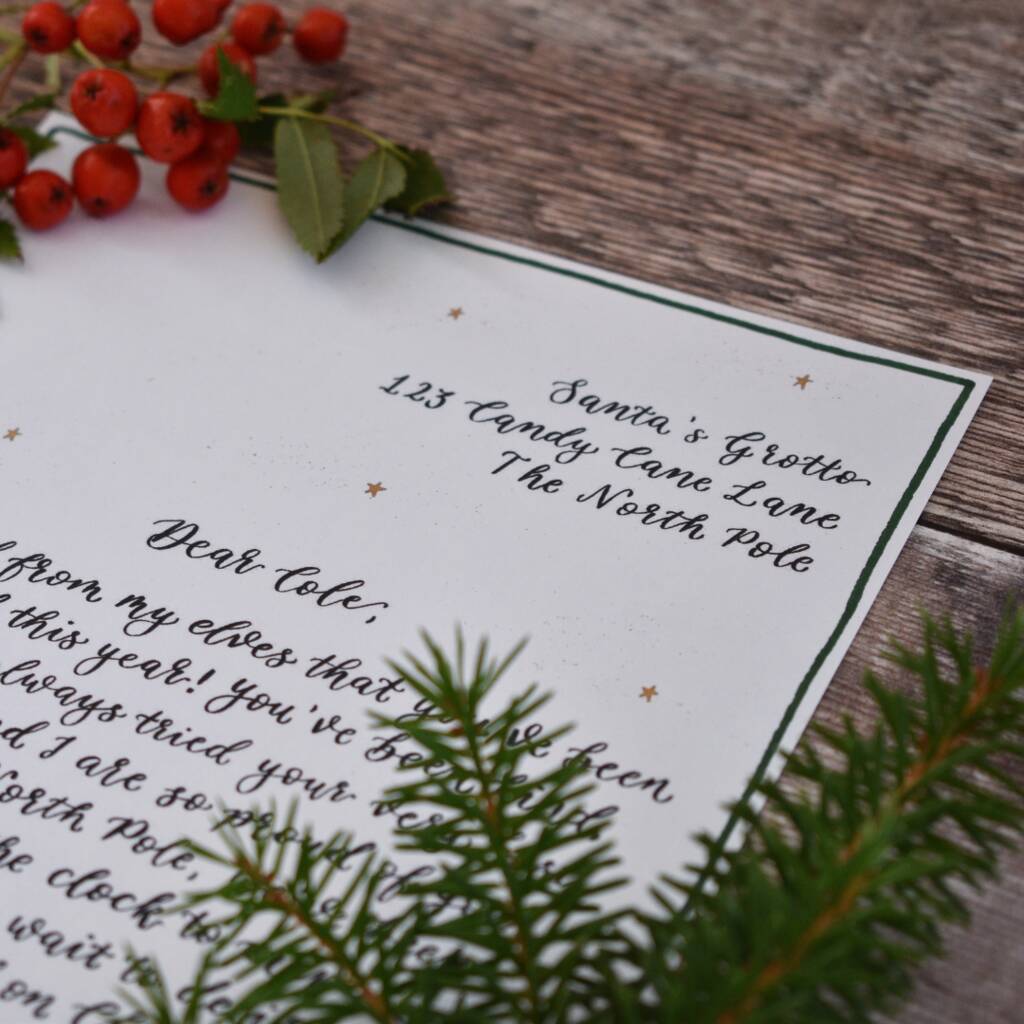 Santa's Grotto
123 Candy Cane Lane
The North Pole
Dear Cole,
from my elves that you've been
this year! You've been kind
always tried your very
and I are so proud of
North Pole,
the clock to
wait to
on